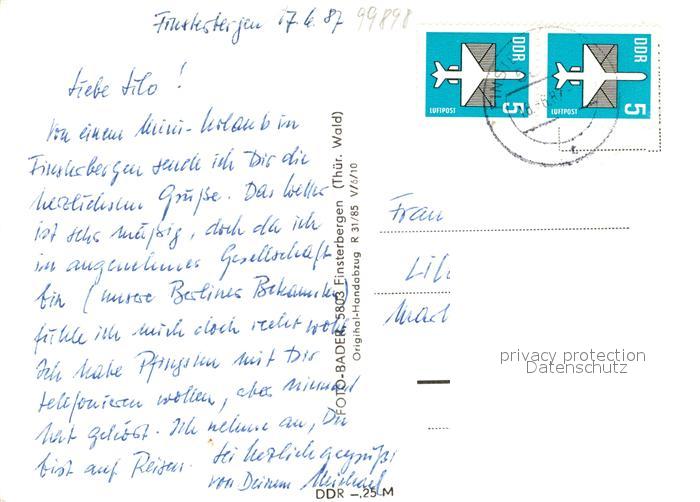 Finsterbergen 17.6.87
99898
Liebe Lilo!
Von einem Mini-Urlaub in
Finsterbergen sende ich Dir die
herzlichsten Grüße. Das Wetter
ist sehr mäßig, doch da ich
in angenehmer Gesellschaft
bin (unsere Berliner Bekannten)
fühle ich mich doch recht wohl.
Ich habe Pfingsten mit Dir
telefonieren wollen, aber niemand
hat gehört. Ich nehme an, Du
bist auf Reisen. Sei herzlich gegrüßt
von Deinem Michael
FOTO-BADER, 5803 Finsterbergen (Thür. Wald)
Original-Handabzug R 31/85 V/6/10
DDR –,25 M
DDR
LUFTPOST
5
DDR
LUFTPOST
5
Frau
privacy protection
Datenschutz